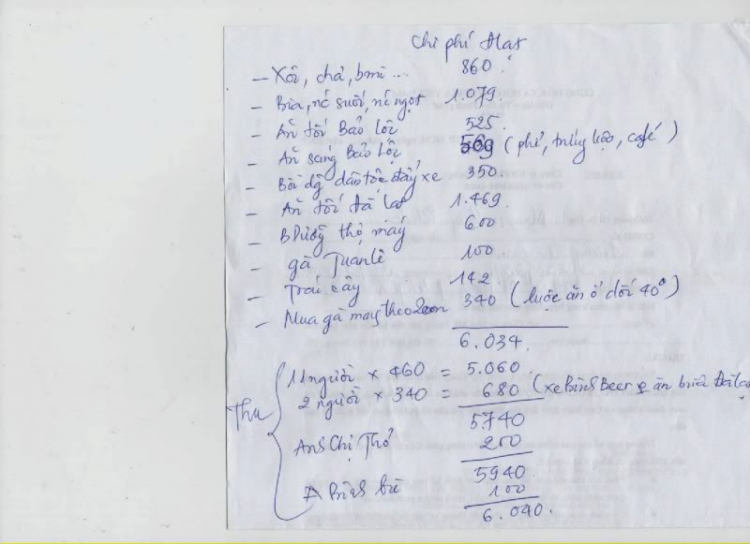 Chi phí Đalat
– Xôi, chả, bmì ... 860
– Bia, nc suối, nc ngọt 1.079.
– Ăn tối Bảo lộc 525.
– Ăn sáng Bảo lộc 569 (phở, trứng, café)
– Bồi dg dân tộc đẩy xe 350.
– Ăn tối Đà lạt 1.469.
– thợ máy 600
– gà Tuanlê 100
– Trái cây 142
– Mua gà mang theo 2con 340 (luộc ăn ở dốc 40°)
6.034.
Thu
11 người × 460 = 5.060.
2 người × 340 = 680 (xe Bình Beer ăn bữa Đà lạt
5740
Anh Chị Thỏ 200
5940
A Bình bù 100
6.040.